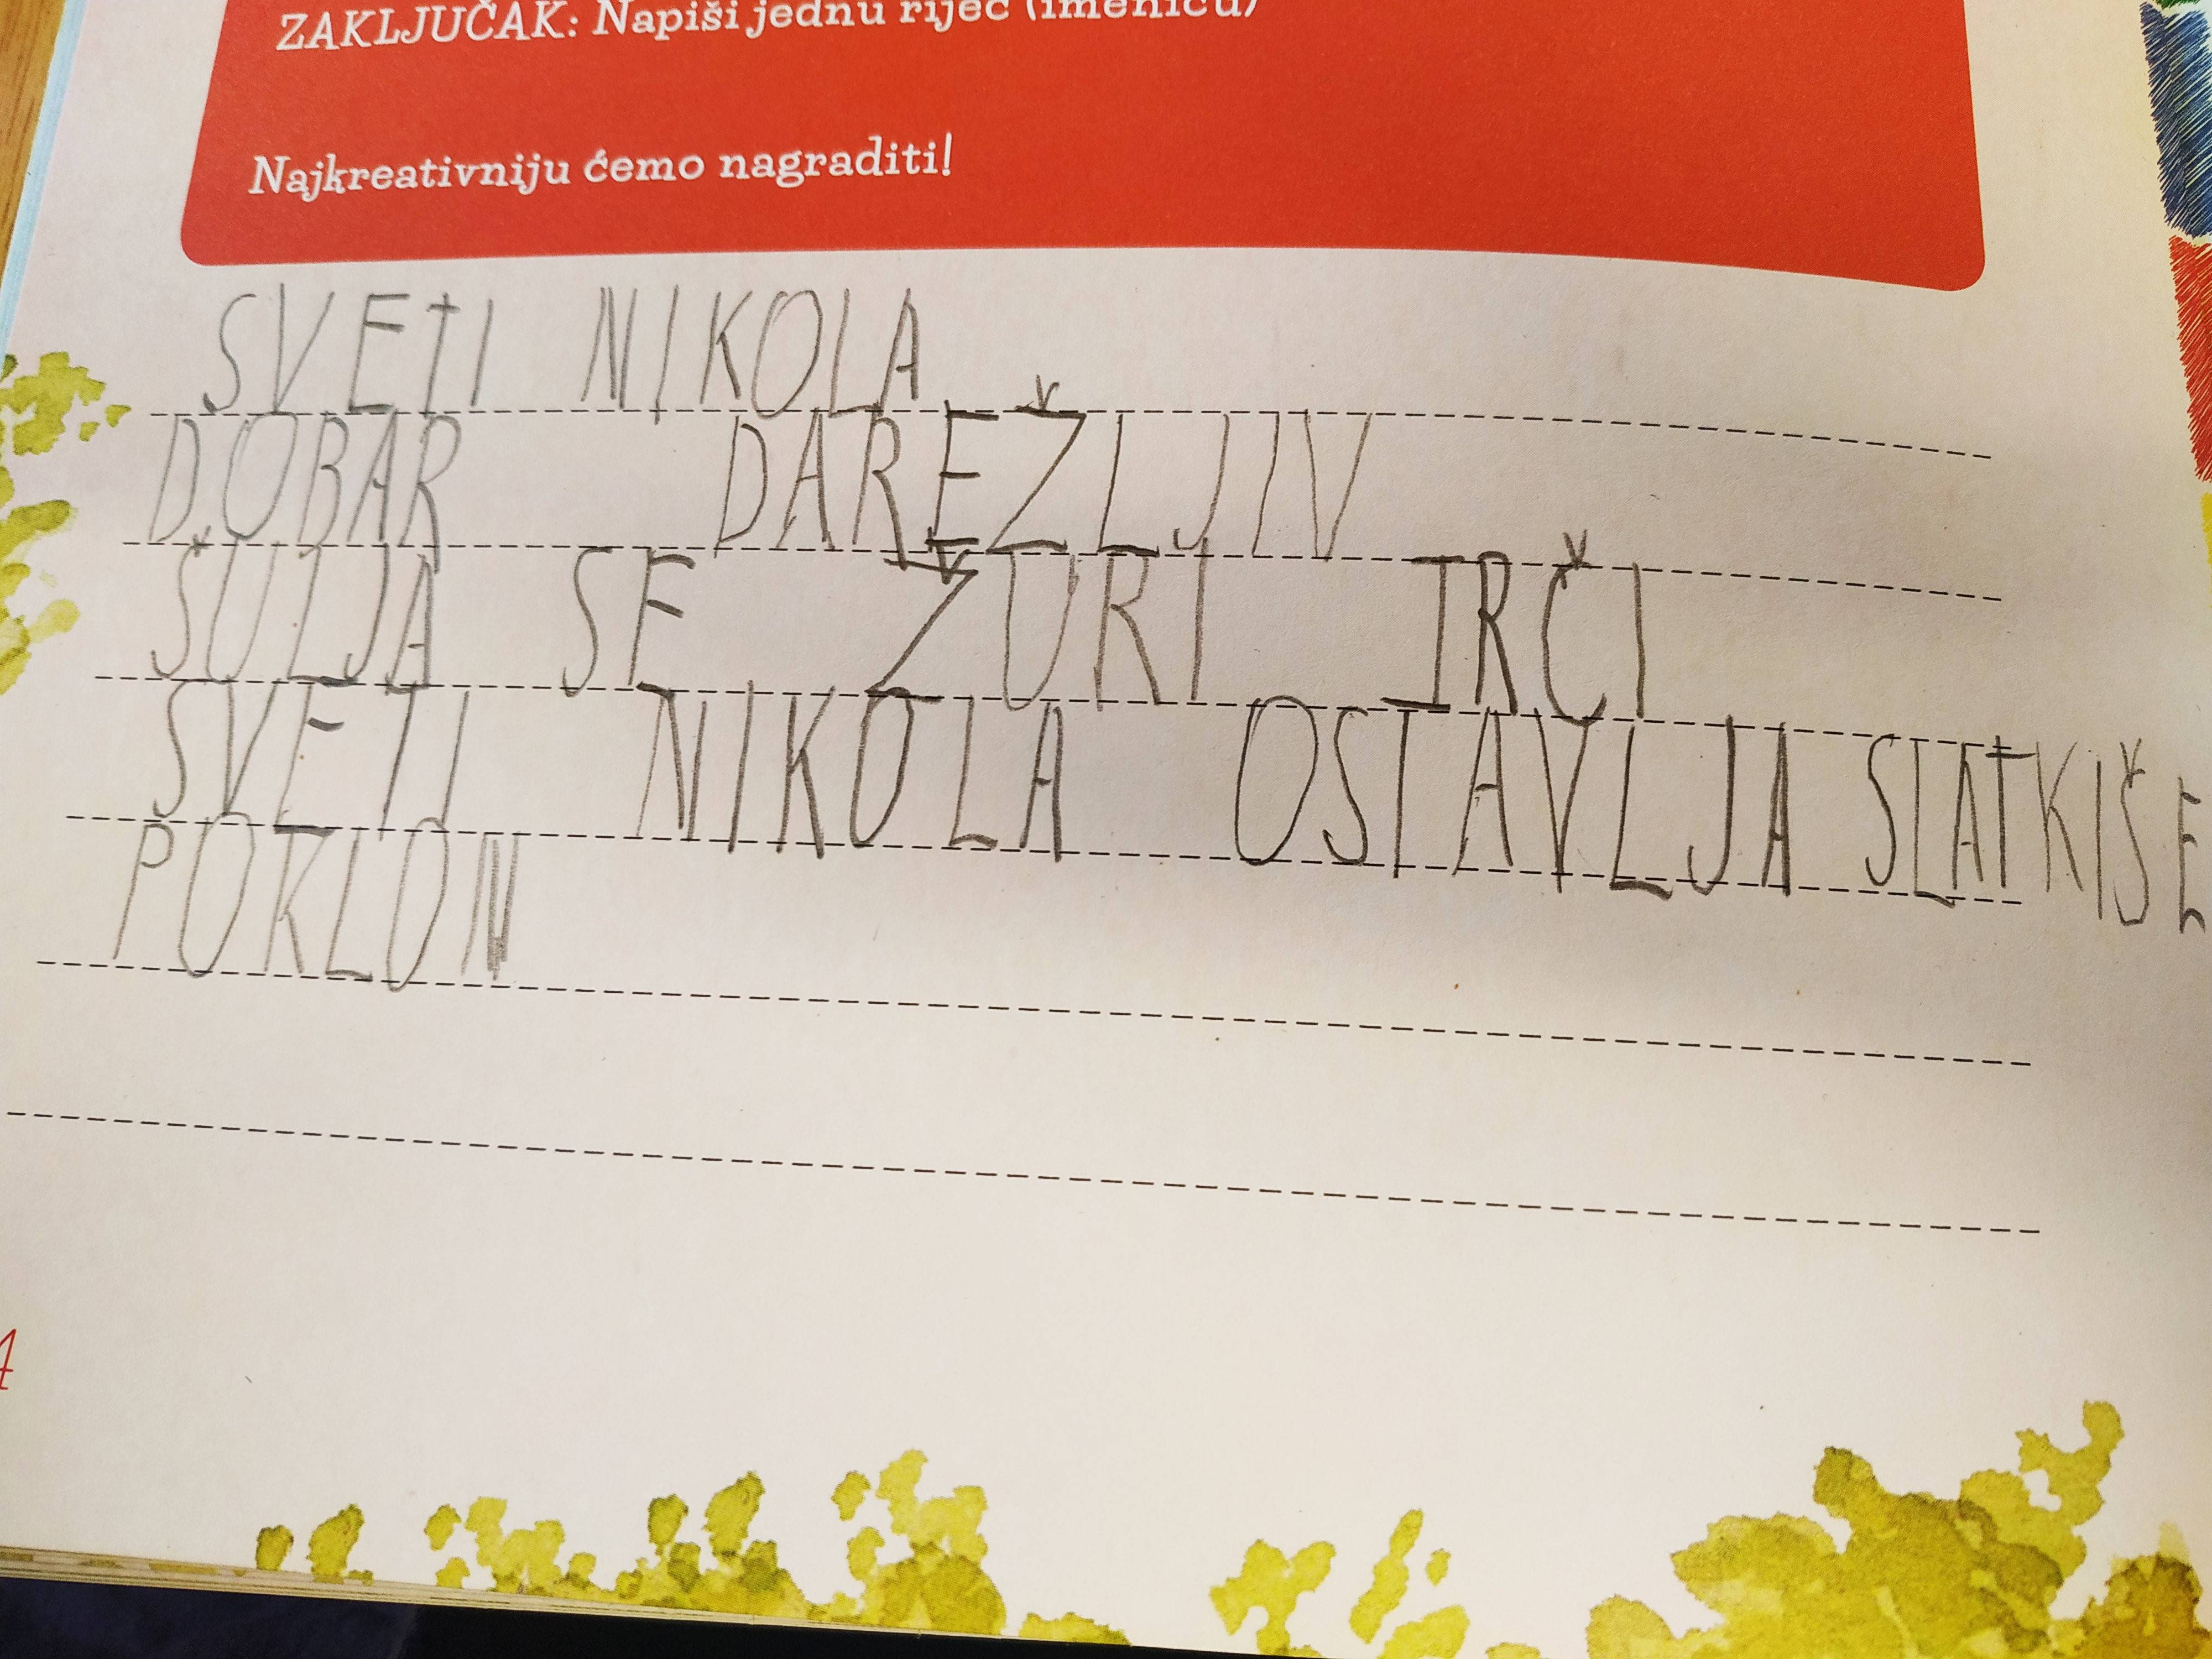 ZAKLJUČAK: Napiši jednu riječ (imenicu)
Najkreativniju ćemo nagraditi!
SVETI NIKOLA
DOBAR DAREŽLJIV
ŠULJA SE ŽURI TRČI
SVETI NIKOLA OSTAVLJA SLATKIŠE
POKLON